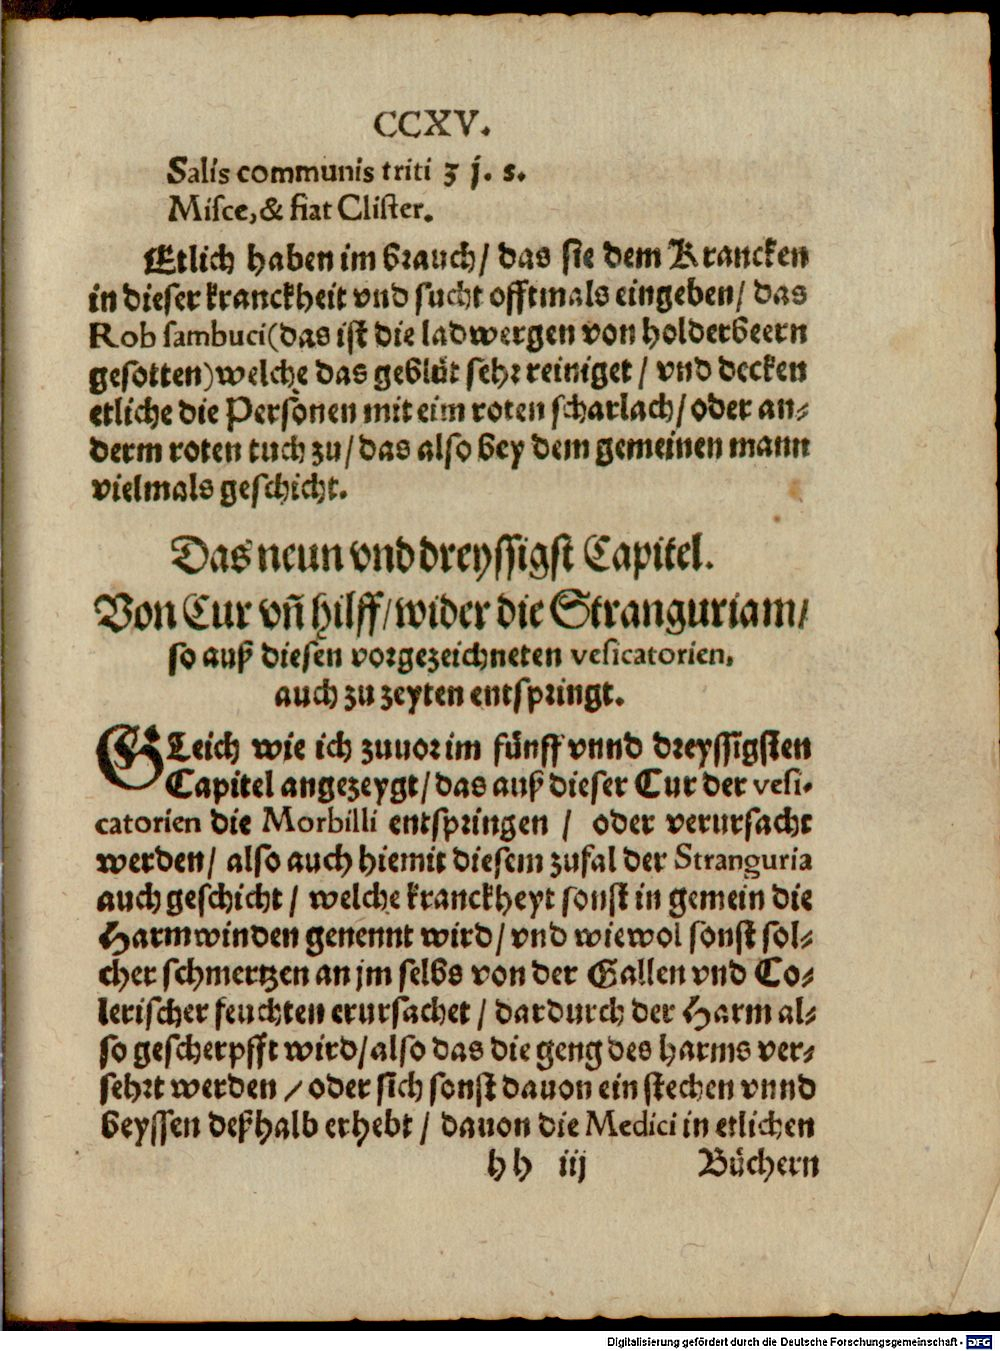 CCXV.
Salis communis triti ʒ j. s.
Misce, & fiat Clister.
Etlich haben im brauch / das sie dem Krancken
in dieser kranckheit vnd sucht offtmals eingeben / das
Rob sambuci (das ist die ladwergen von holderbeern
gesotten) welche das geblüt sehr reiniget / vnd decken
etliche die Personen mit eim roten scharlach / oder an⸗
derm roten tuch zu / das also bey dem gemeinen mann
vielmals geschicht.
Das neun vnd dreyssigst Capitel.
Von Cur vñ hilff / wider die Stranguriam /
so auß diesen vorgezeichneten vesicatorien,
auch zu zeyten entspringt.
GLeich wie ich zuuor im fünff vnnd dreyssigsten
Capitel angezeygt / das auß dieser Cur der vesi-
catorien die Morbilli entspringen / oder verursacht
werden / also auch hiemit diesem zufal der Stranguria
auch geschicht / welche kranckheyt sonst in gemein die
Harmwinden genennt wird / vnd wiewol sonst sol⸗
cher schmertzen an jm selbs von der Gallen vnd Co⸗
lerischer feuchten erursachet / dardurch der Harm al⸗
so gescherpfft wird / also das die geng des harms ver⸗
sehrt werden / oder sich sonst dauon ein stechen vnnd
beyssen deßhalb erhebt / dauon die Medici in etlichen
hh iij Büchern
Digitalisierung gefördert durch die Deutsche Forschungsgemeinschaft - DFG